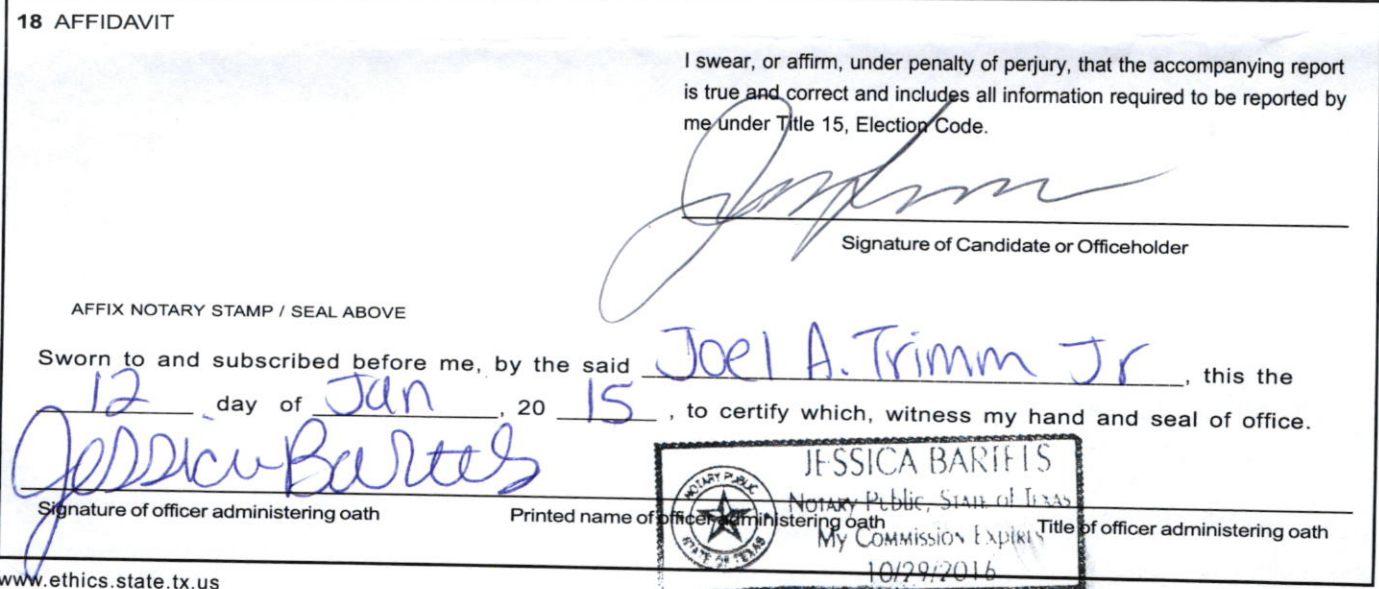 18 AFFIDAVIT
I swear, or affirm, under penalty of perjury, that the accompanying report
is true and correct and includes all information required to be reported by
me under Title 15, Election Code.
Signature of Candidate or Officeholder
AFFIX NOTARY STAMP / SEAL ABOVE
Sworn to and subscribed before me, by the said Joel A. Trimm Jr, this the
12 day of Jan, 20 15, to certify which, witness my hand and seal of office.
Jessica Bartels
JESSICA BARTELS
NOTARY PUBLIC, STATE OF TEXAS
MY COMMISSION EXPIRES
10/29/2016
NOTARY PUBLIC
STATE OF TEXAS
Signature of officer administering oath
Printed name of officer administering oath
Title of officer administering oath
www.ethics.state.tx.us